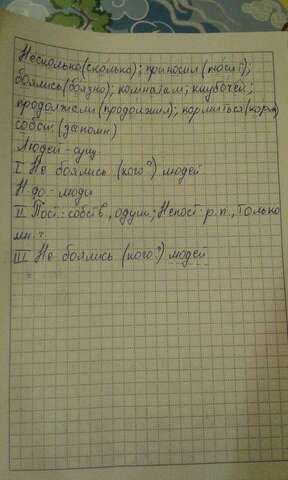 Несколько (сколько); приносил (носит);
боялись (боязно); комнатам; клубочек;
продолжали (продолжил); кормиться (корм)
собой (запомн.)
Людей - сущ.
I Не боялись (кого?) людей
Н.ф.- люди
II Пост.: собств., одуш.; Непост. р.п., только
мн.ч.
III Не боялись (кого?) людей